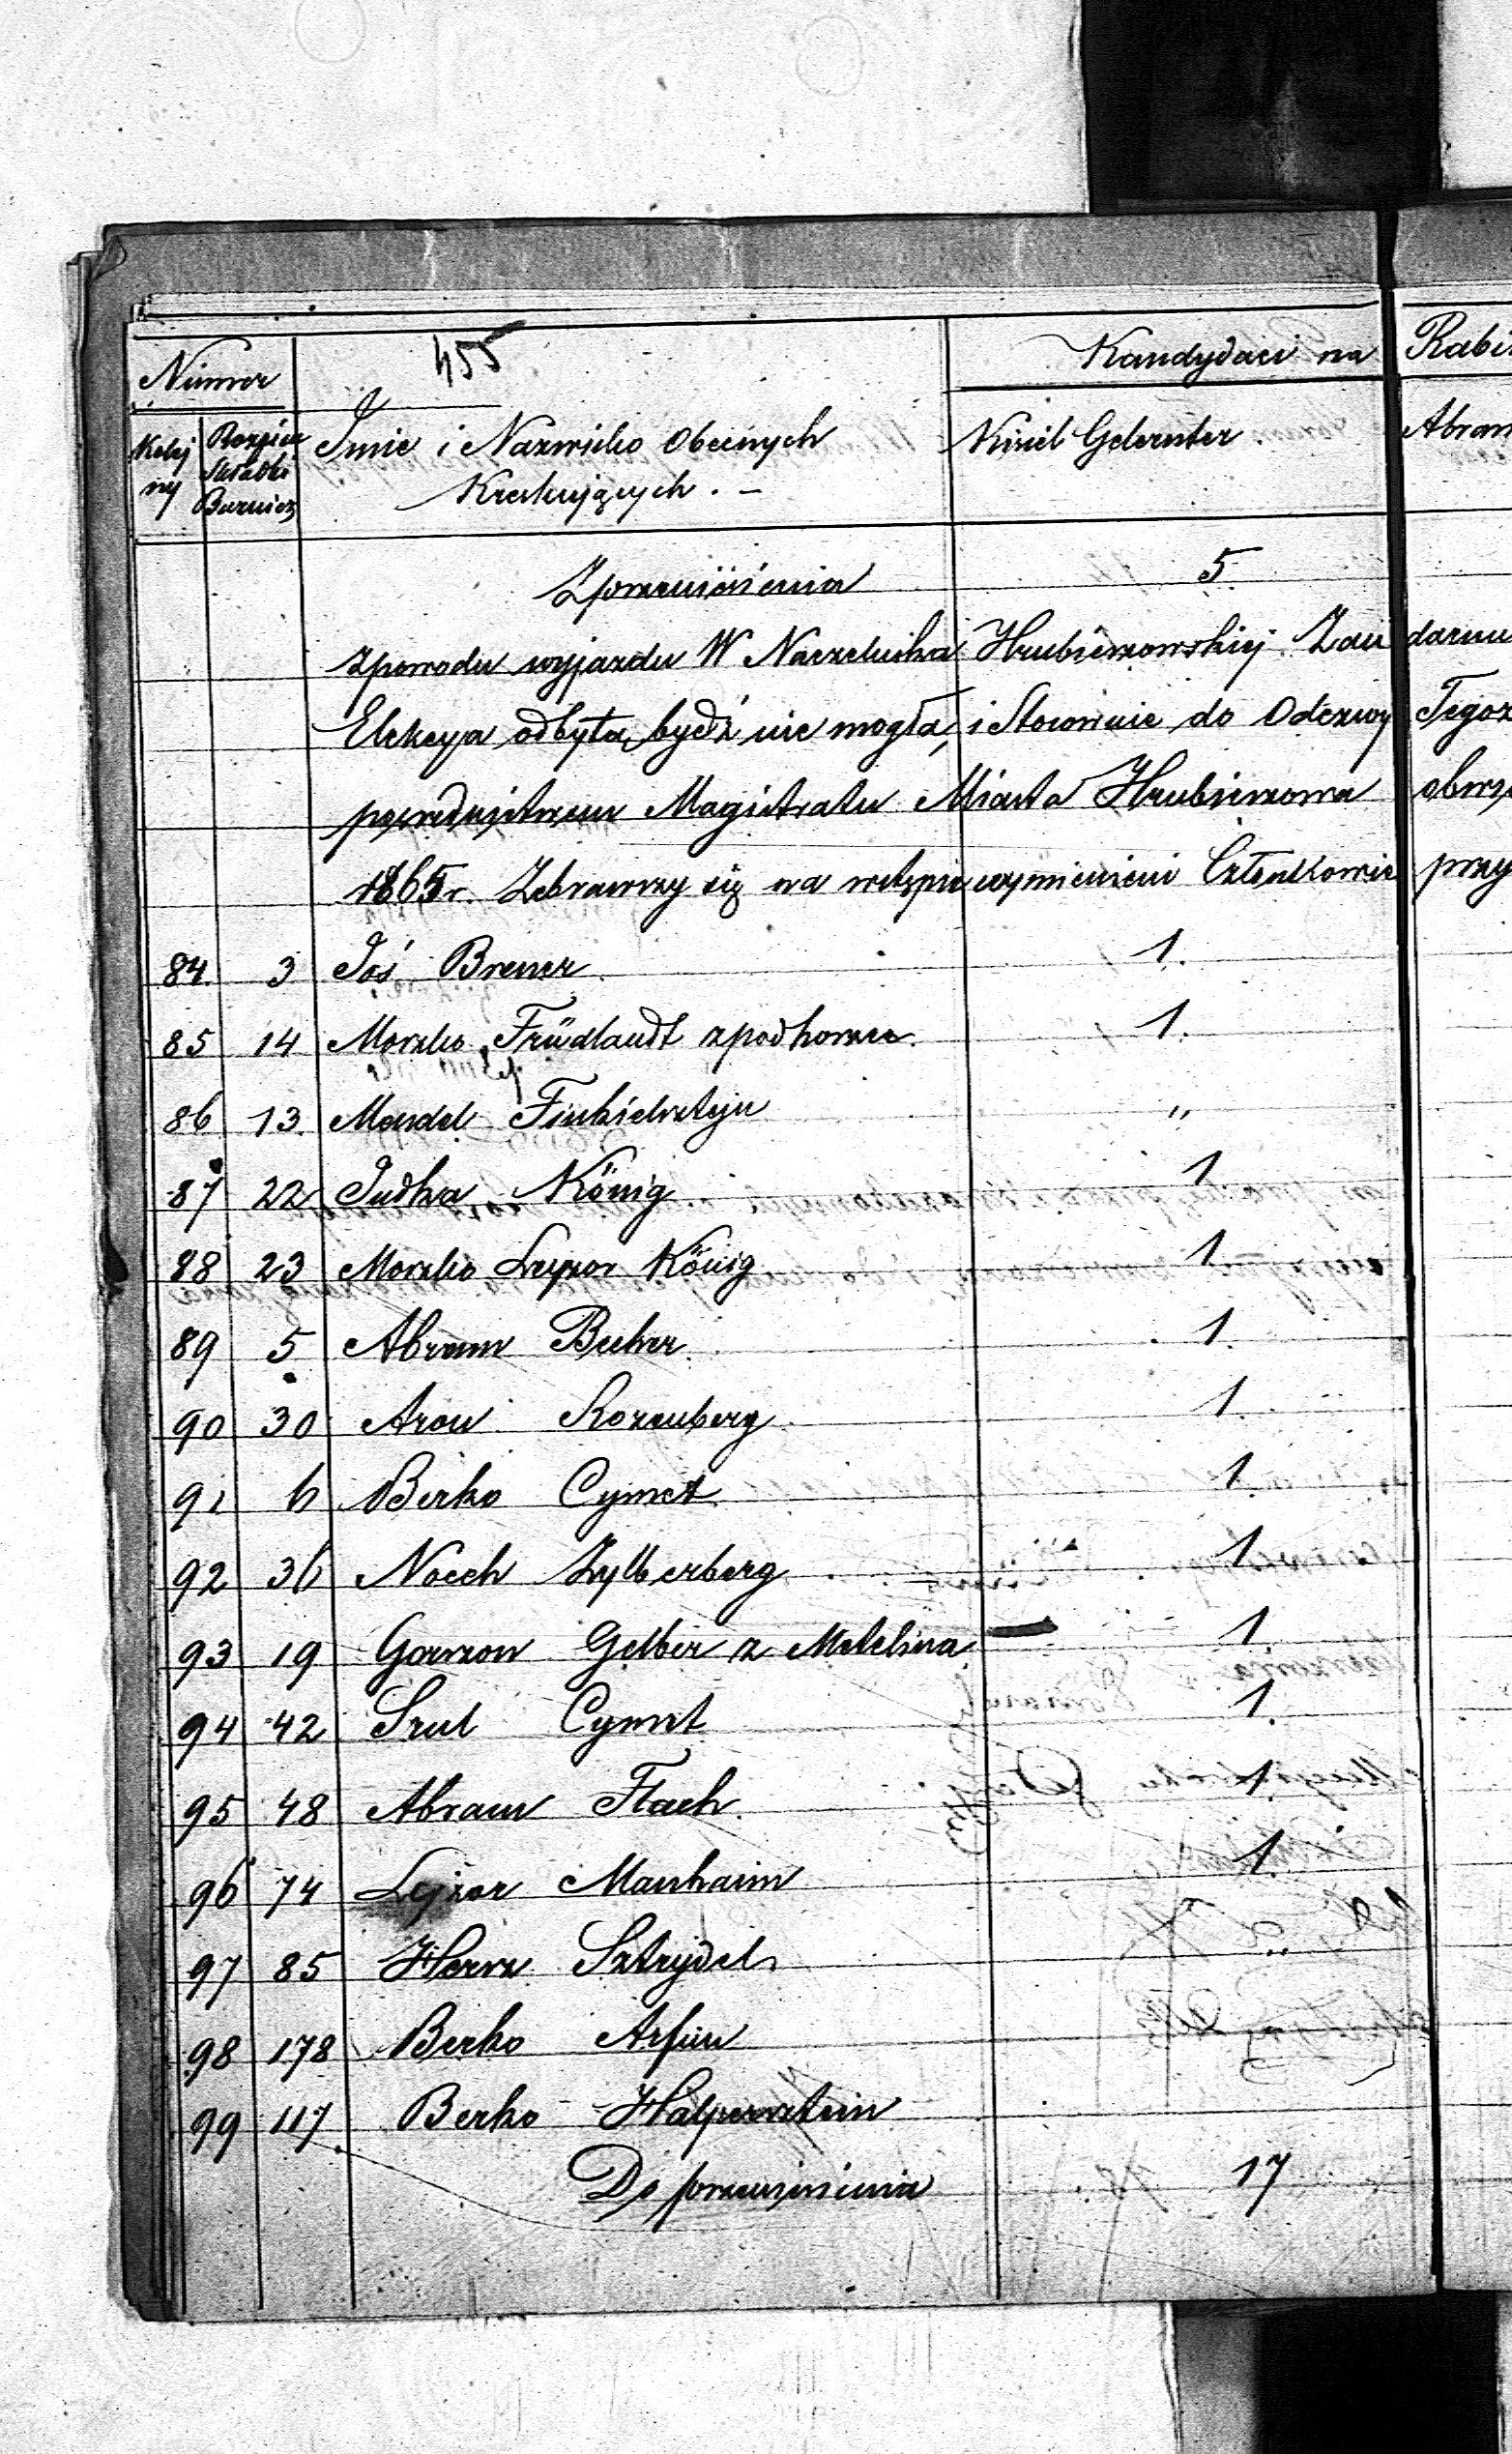 Numer 455 Kandydaci na Rabi
Kolej ny Rozpisu Składki Bużnicz Imie i Nazwisko Obecnych Kinel Gelernter Abram
Kreskujących. –
Zprzeniesienia 5
zpowodu wyjazdu W Naczelnika Hrubieszowskiej Żan darmu
Elekcya odbytą bydź nie mogła, i Stosownie do Odezwy Tegoż
pośrednictwem Magistratu Miasta Hrubieszowa
1865 r. Zebrawszy się na wstępie wymienieni Członkowie przy
84 3 Joś Brener 1.
85 14 Moszko Früdlandt zpodhorzec. 1.
86 13 Mendel Finkielsztejn "
87 22 Judka König 1
88 23 Moszko Leyzor König 1.
89 5 Abram Beker 1.
90 30 Aron Rozenberg 1.
91 6 Berko Cymet 1.
92 36 Noech Zylberberg 1.
93 19 Gerszon Gelber z Metelina 1.
94 42 Srul Cymet 1.
95 48 Abram Flach 1.
96 74 Lejzor Manhaim 1.
97 85 Hersz Sztrydel "
98 178 Berko Arfin
99 117 Berko Halpersztein
Do przeniesienia 17